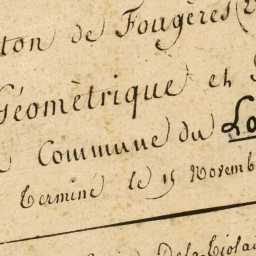 ton de Fougères
Géomètrique et
Commune du Lo
Terminé le 15 Novemb